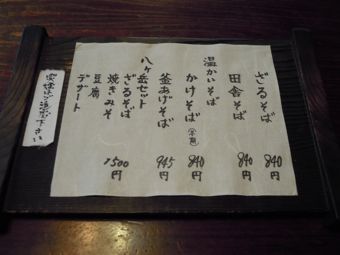 ざるそば 840円
田舎そば 840円
温かいそば
かけそば 840円
釜あげそば 945円
八ヶ岳セット
ざるそば
焼きみそ
豆腐
デザート
1500円